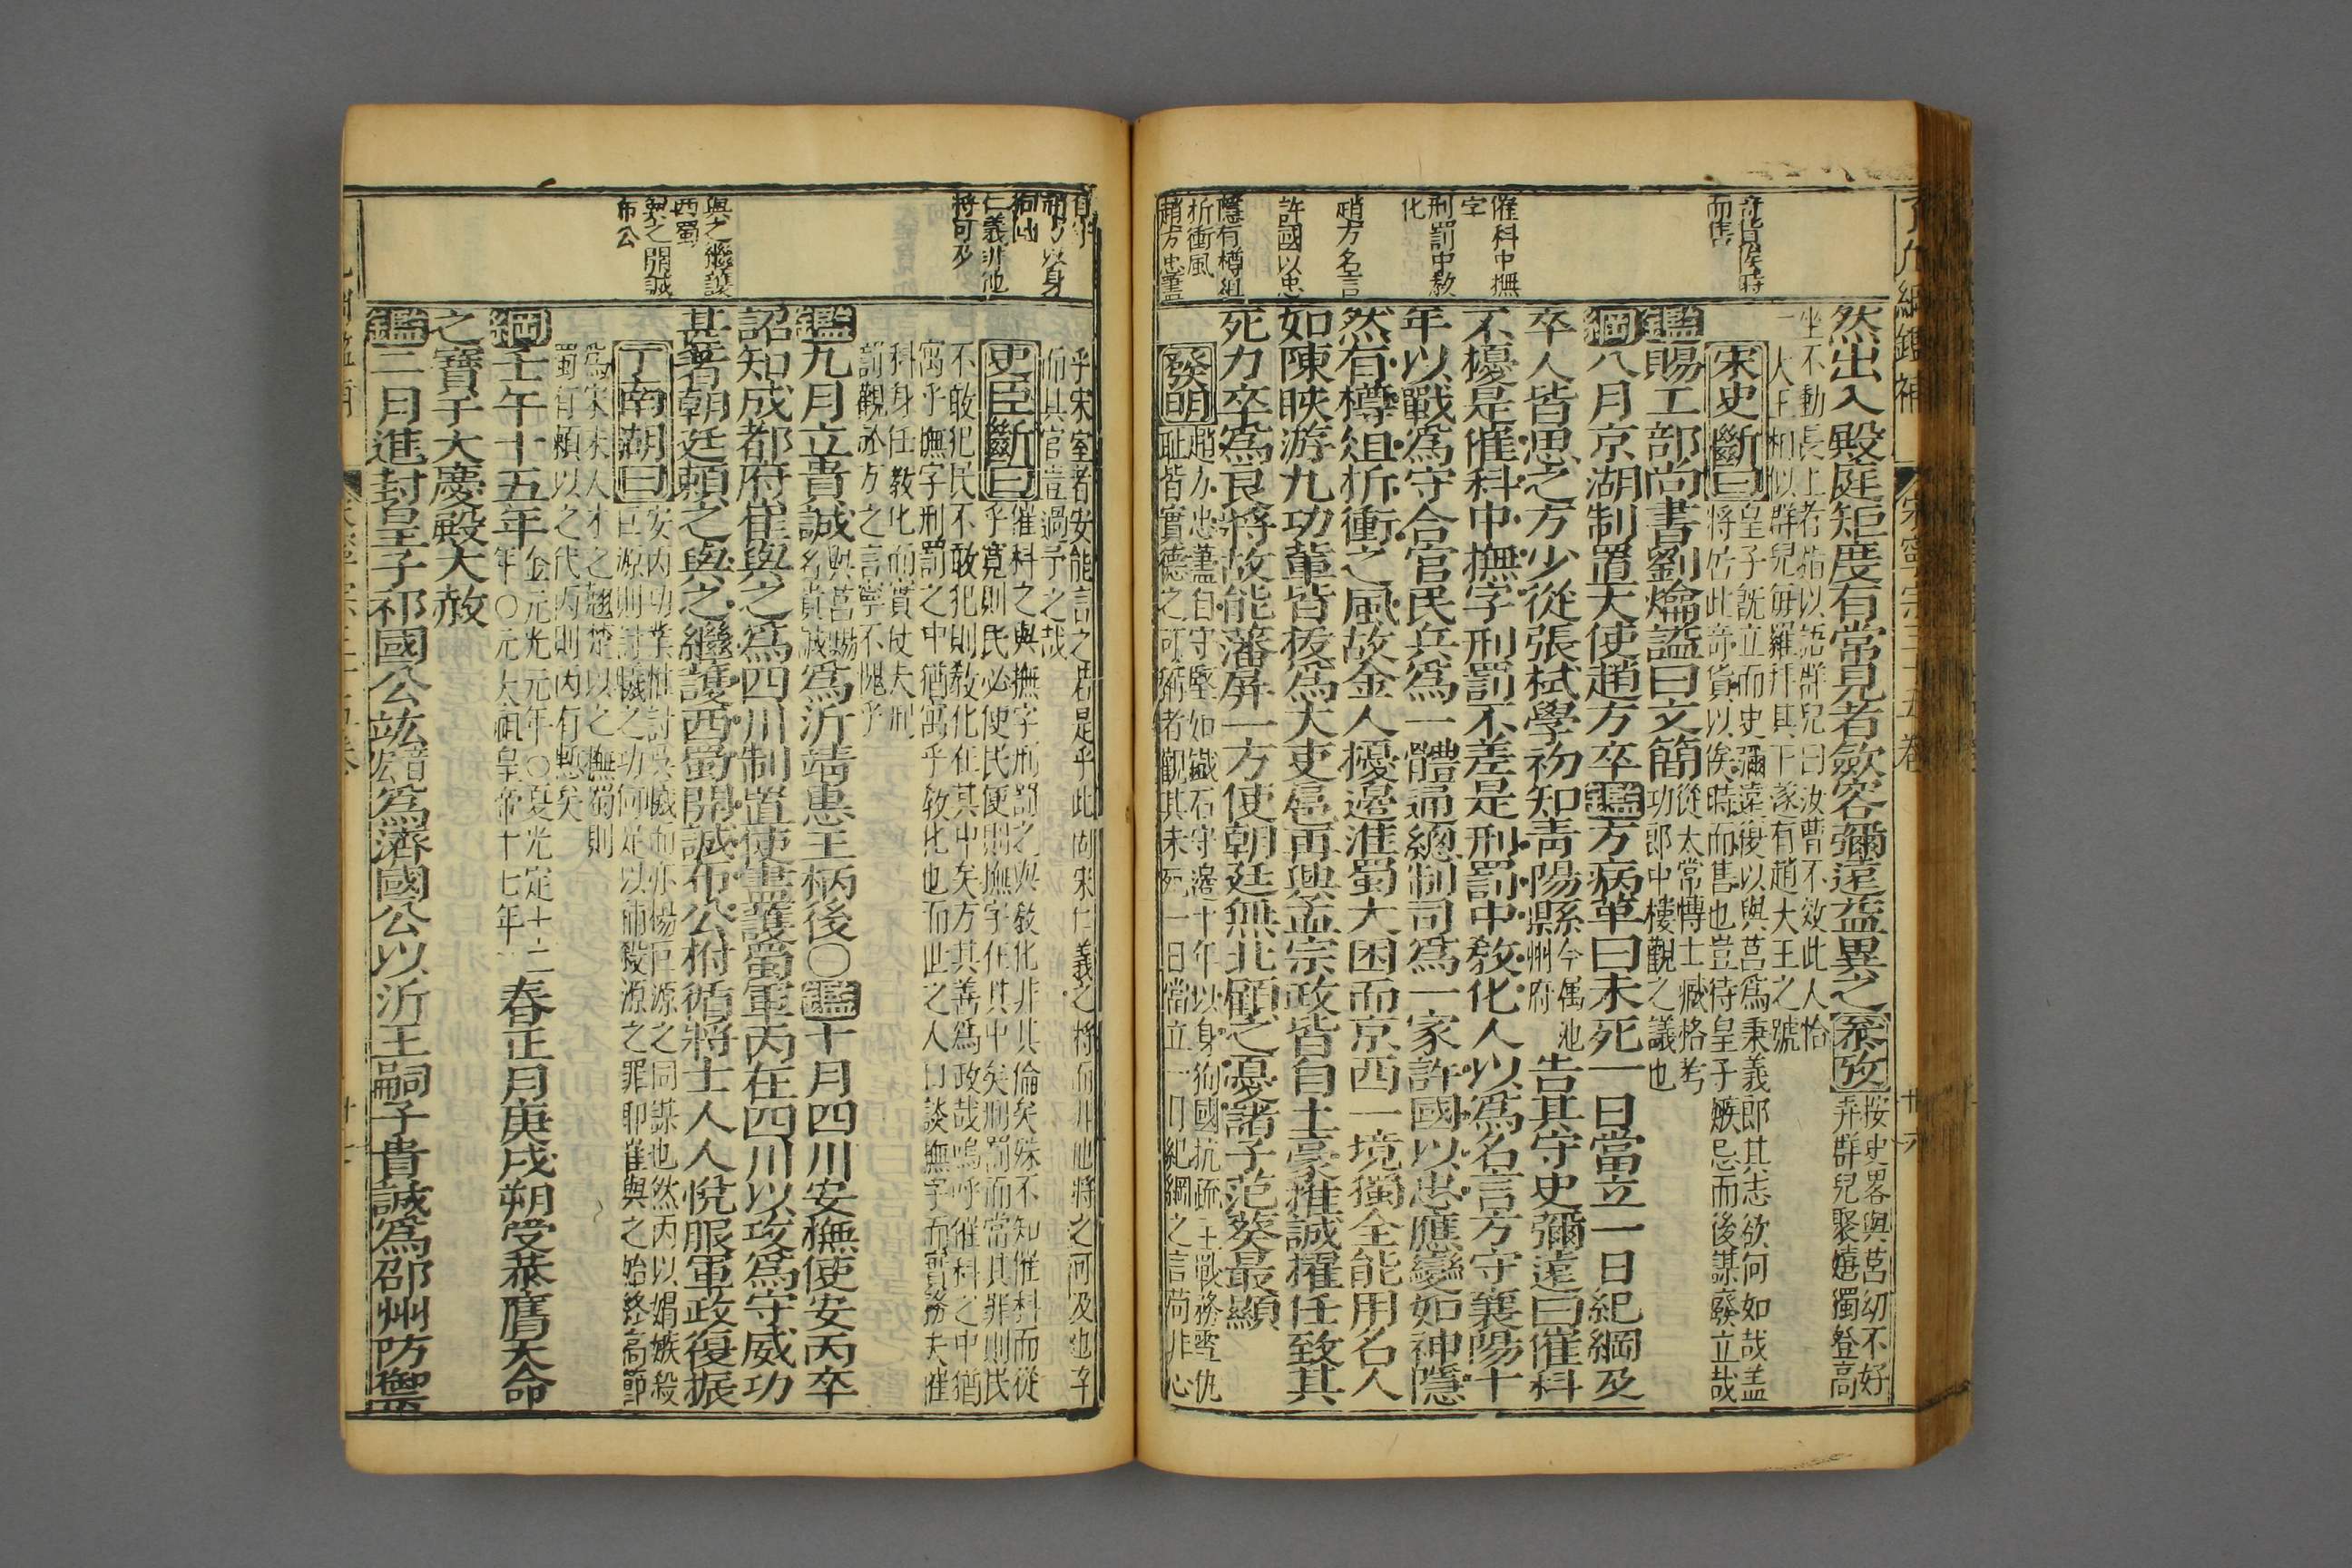 奇貨俟時
而售
催科中撫
字
刑罰中教
化
趙方名言
許國以忠
隱有樽俎
折衝風
趙方忠藎
然出入殿庭矩度有常見者歛容彌遠益異之叅攷
按史畧與莒幼不好
弄群兒聚嬉獨登高
坐不動長上者指以語群兒曰汝曹不效此人恰
一大王相似群兒毎羅拜其下遂有趙大王之號
宋史斷曰
皇子旣立而史彌遠復以與莒爲秉義郎其志欲何如哉盖
將居此奇貨以俟時而售也豈待皇子嫉忌而後謀廢立哉
鑑賜工部尚書劉爚謚曰文簡
從太常博士臧格考
功郎中樓觀之議也
綱八月京湖制置大使趙方卒鑑方病革曰未死一日當立一日紀綱及
卒人皆思之方少從張栻學初知靑陽縣
今属池
州府
告其守史彌遠曰催科
不擾是催科中撫字刑罰不差是刑罰中敎化人以爲名言方守襄陽十
年以戰爲守合官民兵爲一體通總制司爲一家許國以忠應變如神隱
然有樽俎折衝之風故金人擾邊淮蜀大困而京西一境獨全能用名人
如陳晐游九功輩皆拔爲大吏扈再興孟宗政皆自土豪推誠擢任致其
死力卒爲良將故能藩屏一方使朝廷無北顧之憂諸子范葵最顯
發明
趙方忠藎自守堅如鐵石守邊十年以身狥國抗疏主戰務雪仇
耻皆實德之可術者觀其未死一日當立一日紀綱之言苟非心
乎宋室者安能言之君是乎此
而其官豈過予之哉
史臣斷曰
催科之與撫字刑罰之與敎化非其倫矣殊不知催科而從
乎寛則民必使民便則撫字在其中矣刑罰而當其罪則民
不敢犯民不敢犯則敎化在其中矣方其善爲政哉嗚呼催科之中猶
寓乎撫字刑罰之中猶寓乎敎化也而世之人口談撫字而實務夫催
科身任敎化而實仗夫刑
罰觀於方之言寧不愧乎
鑑九月立貴誠
與莒賜
名貴誠
爲沂靖惠王柄後〇鑑十月四川安撫使安丙卒
詔知成都府崔與之爲四川制置使盡護蜀軍丙在四川以攻爲守威功
甚著朝廷頼之與之繼護西蜀開誠布公拊循將士人人悅服軍政復振
丁南湖曰
安丙功業惟討吳曦而亦楊巨源之同謀也然丙以媢嫉殺
巨源則討曦之功何足以補殺源之罪耶崔與之始終高節
爲宋末人才之翹楚以之撫蜀則
蜀有頼以之代丙則丙有慙矣
綱壬午十五年
金元光元年〇夏光定十二
年〇元太祖皇帝十七年
春正月庚戌朔受恭膺天命
之寶于大慶殿大赦
鑑二月進封皇子祁國公竑爲濟國公以沂王嗣子貴誠爲邵州防禦
仁義非他
將可及
與之繼護
西蜀
與之開誠
布公